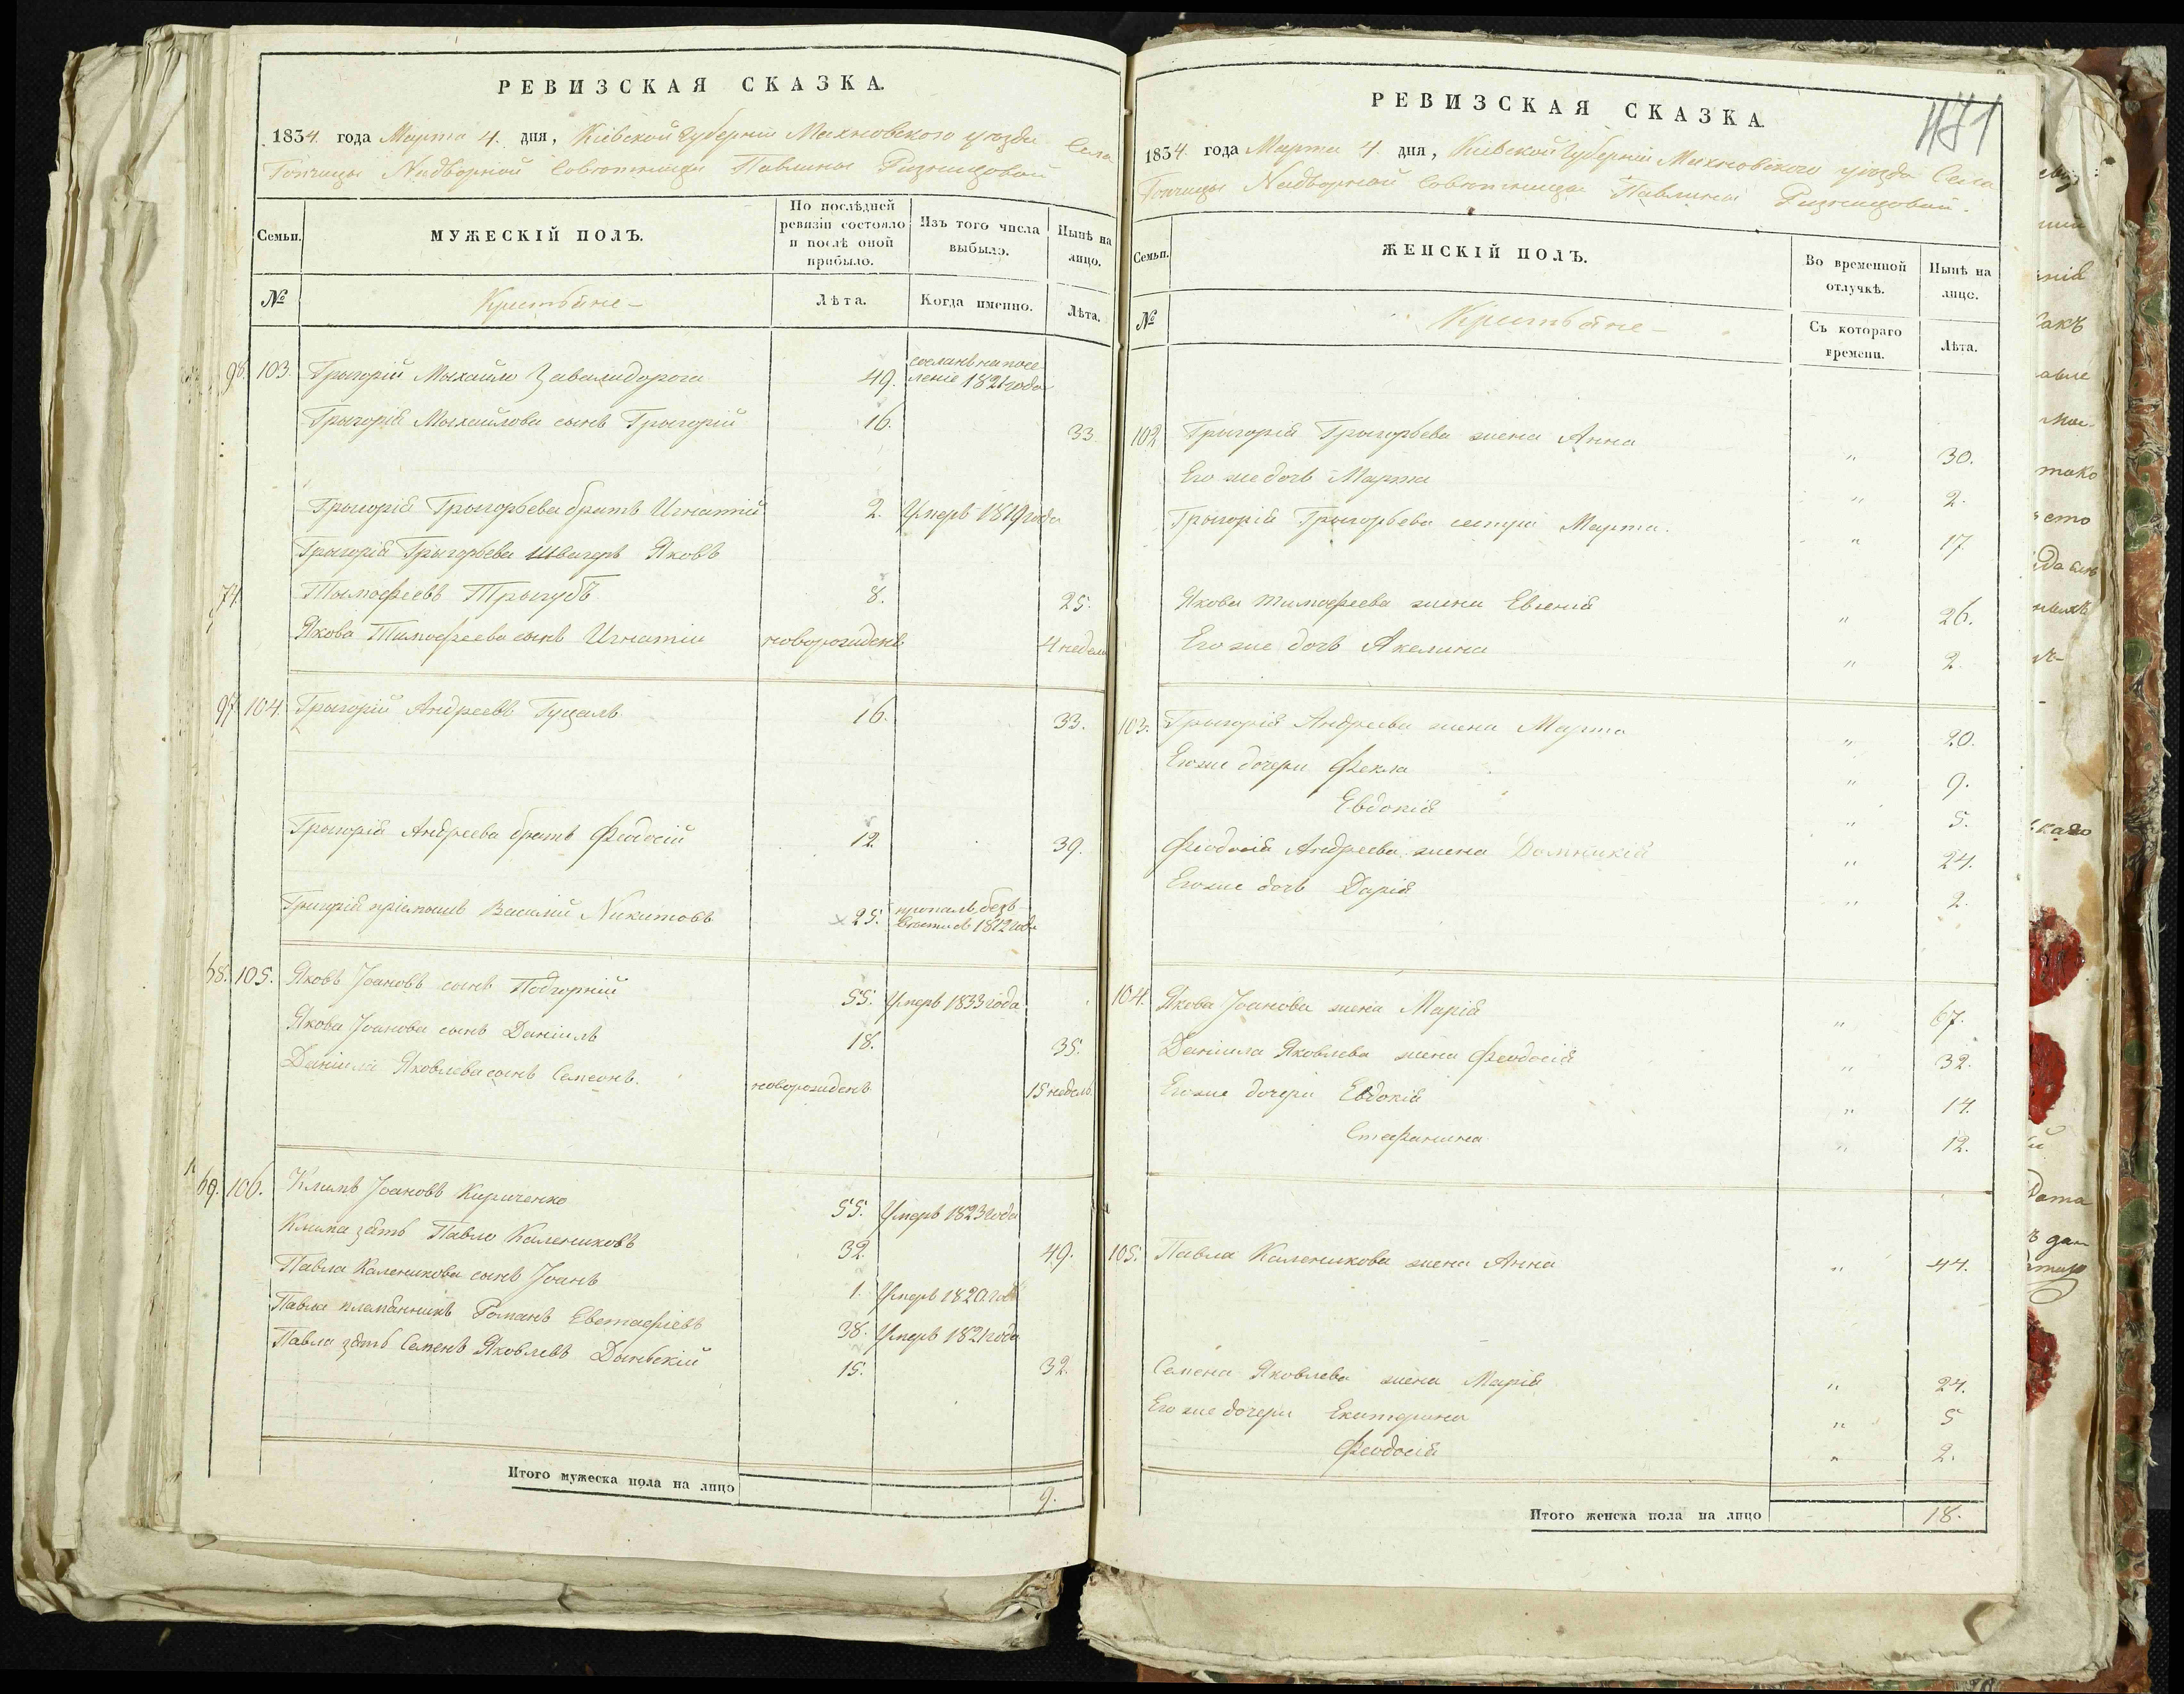 РЕВИЗСКАЯ СКАЗКА.
1834. года Марта 4. дня, Кіевской Губерніи Махновского уезда Села
Гопчицы Надворной Советницы Павлины Ризницовой
Семьи. МУЖЕСКІЙ ПОЛЪ. По послѣдней ревизіи состояло и послѣ оной прибыло. Изъ того числа выбыло. Нынѣ на лицо.
№ Крестьяне Лѣта. Когда именно. Лѣта.
98. 103. Григорій Михайло Завалидорога 49. сосланъ на поселеніе 1821 года
Григорія Михайлова сынъ Григорій 16. 33.
Григорія Григорьева братъ Игнатій 2. Умеръ 1819 года
Григорія Григорьева швагеръ Яковъ
74. Тимофеевъ Трыгубъ 8. 25.
Якова Тимофеева сынъ Игнатіи новорожденъ 4 недели
97. 104. Григорій Андреевъ Гуцалъ 16. 33.
Григорія Андреева братъ Феодосій 12. 39.
Григорія пріемышъ Василій Никитовъ × 25. пропалъ безъ вести въ 1812 годе
68. 105. Яковъ Іоановъ сынъ Подгорній 55. Умеръ 1833 года
Якова Іоанова сынъ Даніилъ 18. 35.
Даніила Яковлева сынъ Семеонъ. новорожденъ 15 недель
69. 106. Климъ Іоановъ Кириченко 55. Умеръ 1823 года
Клима зять Павло Калениковъ 32. 49.
Павла Каленикова сынъ Іоанъ 1. Умеръ 1820 год
Павла племянникъ Романъ Евстафіевъ 38. Умеръ 1821 года
Павла зять Семенъ Яковлевъ Дыньскій 15. 32.
Итого мужеска пола на лицо 9.
РЕВИЗСКАЯ СКАЗКА.
1834. года Марта 4. дня, Кіевской Губерніи Махновского уезда Села
Гопчицы Надворной Советницы Павлины Ризницовой.
Семьи. ЖЕНСКІЙ ПОЛЪ. Во временной отлучкѣ. Нынѣ на лице.
№ Крестьяне Съ котораго времени. Лѣта.
102 Григорія Григорьева жена Анна " 30.
Его же дочь Марта " 2.
Григорія Григорьева сестра Марта. " 17.
Якова Тимофеева жена Евгенія " 26.
Его же дочь Акелина " 2.
103. Григорія Андреева жена Марта " 20.
Его же дочери Фекла " 9.
Евдокія " 5.
Феодосія Андреева жена Домникія " 24.
Его же дочь Дарія " 2.
104. Якова Іоанова жена Марія " 67.
Даніила Яковлева жена Феодосія " 32.
Его же дочери Евдокія " 14.
Стефанина " 12.
105. Павла Каленикова жена Анна " 44.
Семена Яковлева жена Марія " 24.
Его же дочери Екатерина " 5
Феодосія " 2.
Итого женска пола на лицо 18.